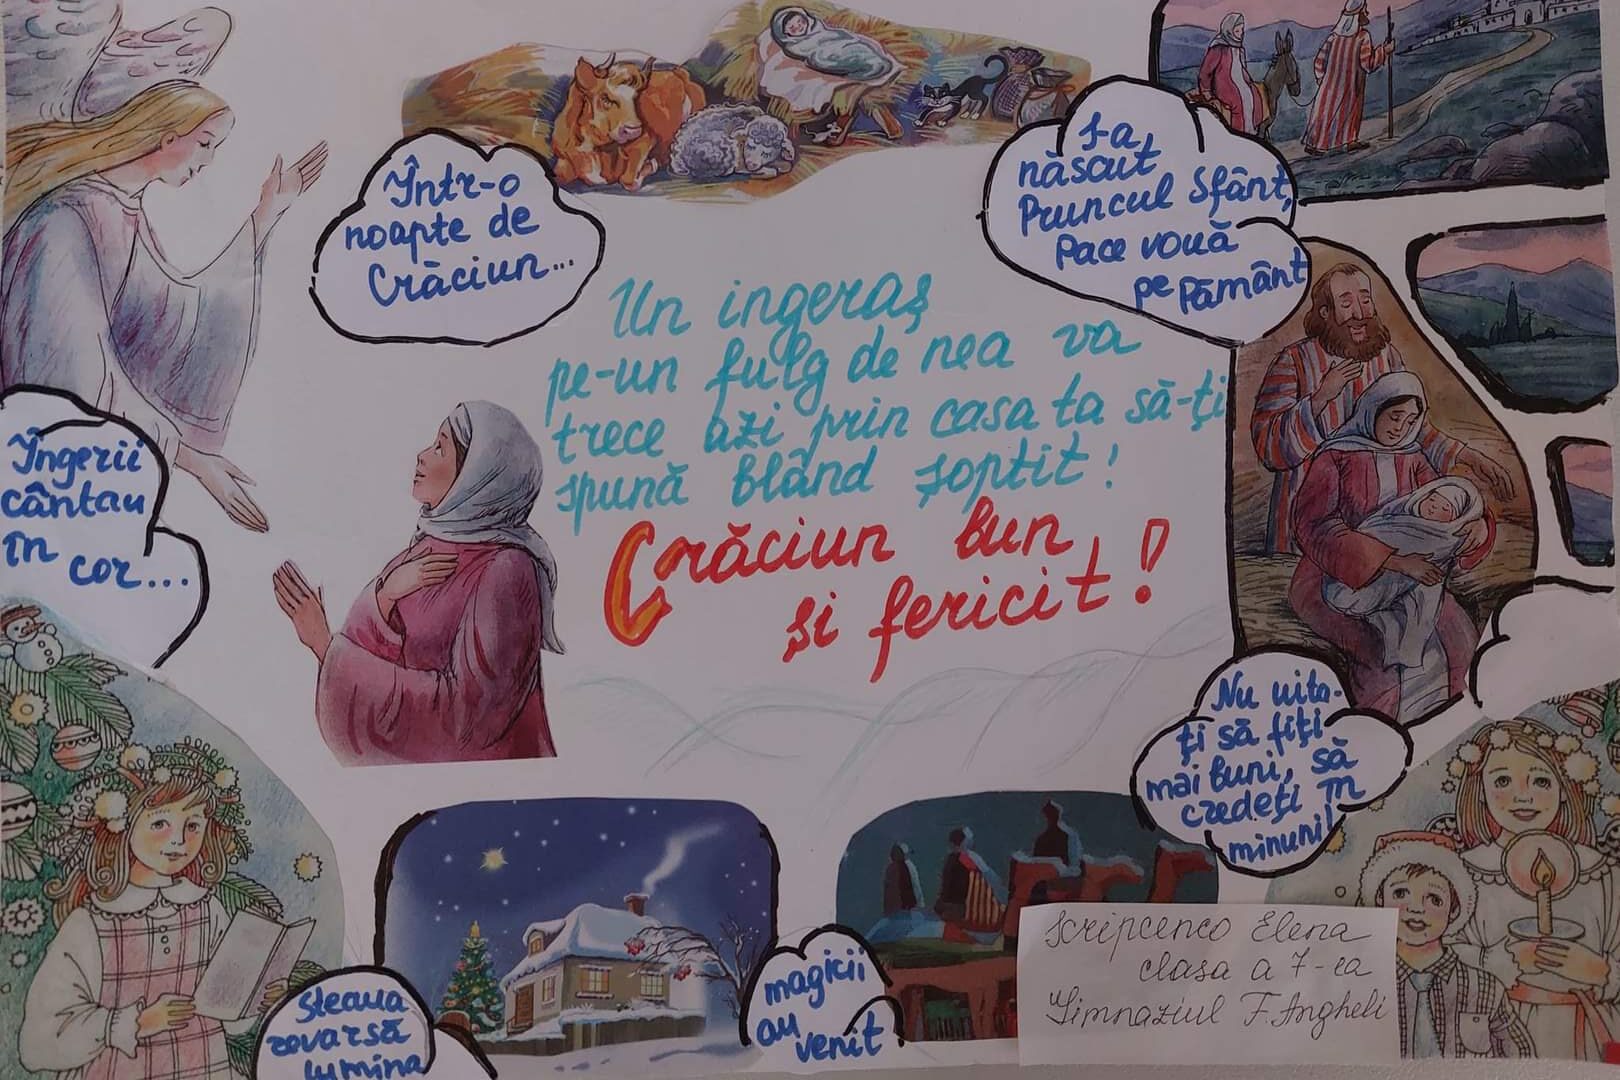 Într-o
noapte de
Crăciun...
S-a
născut
Pruncul Sfânt,
Pace vouă
pe Pământ
Un ingeraș
pe-un fulg de nea va
trece azi prin casa ta să-ți
spună blând șoptit!
Crăciun bun
și fericit!
Îngerii
cântau
în cor...
Nu uita-
ți să fiți
mai buni, să
credeți în
minuni!
Steaua
revarsă
lumina
magicii
au
venit
Scripcenco Elena
clasa a 7-ea
Gimnaziul F. Angheli